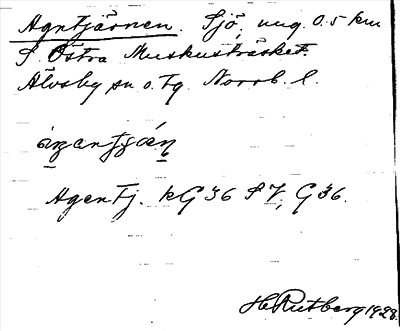 Agntjärnen. Sjö, ung. 0.5 km
S. Östra Muskusträsket.
Älvsby sn o. tg. Norrb. l.
Agentj. KG 36 S V, G 36.
H. Rutberg 1928.